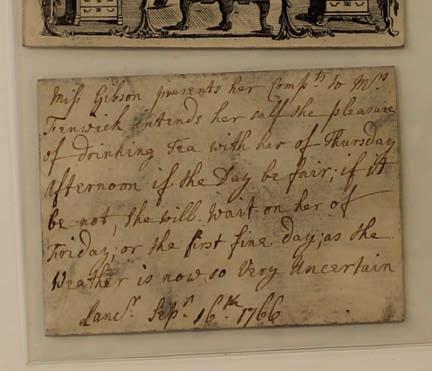 Miss Gibson presents her Comp.ts to Mrs
Fenwick intends her self the pleasure
of drinking Tea with her of Thursday
Afternoon if the Day be fair; if it
be not, She will wait on her of
Friday, or the first fine day; as the
Weather is now so Very Uncertain
Lanc.r Sep.r 16.th 1766